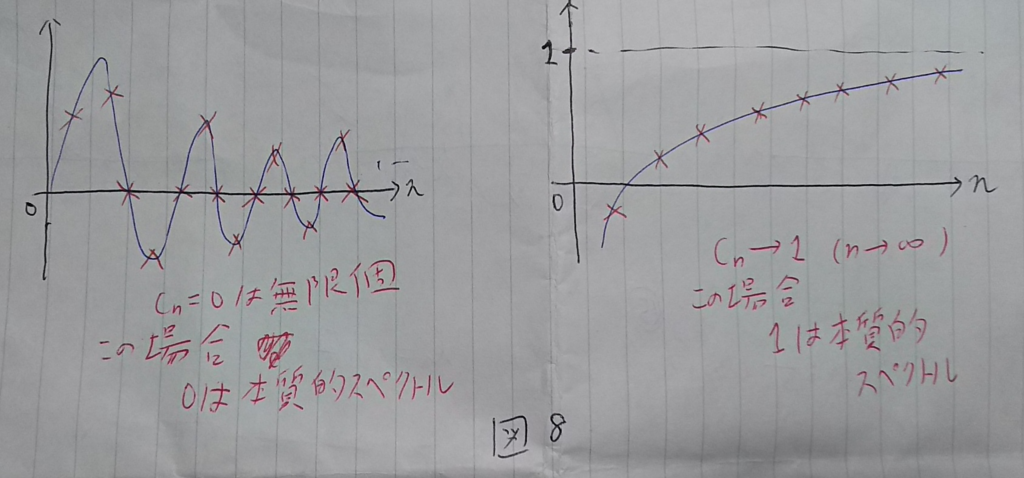 0
n
Cn=0は無限個
この場合
0は本質的スペクトル
1
0
n
Cn→1 (n→∞)
この場合
1は本質的
スペクトル
図 8